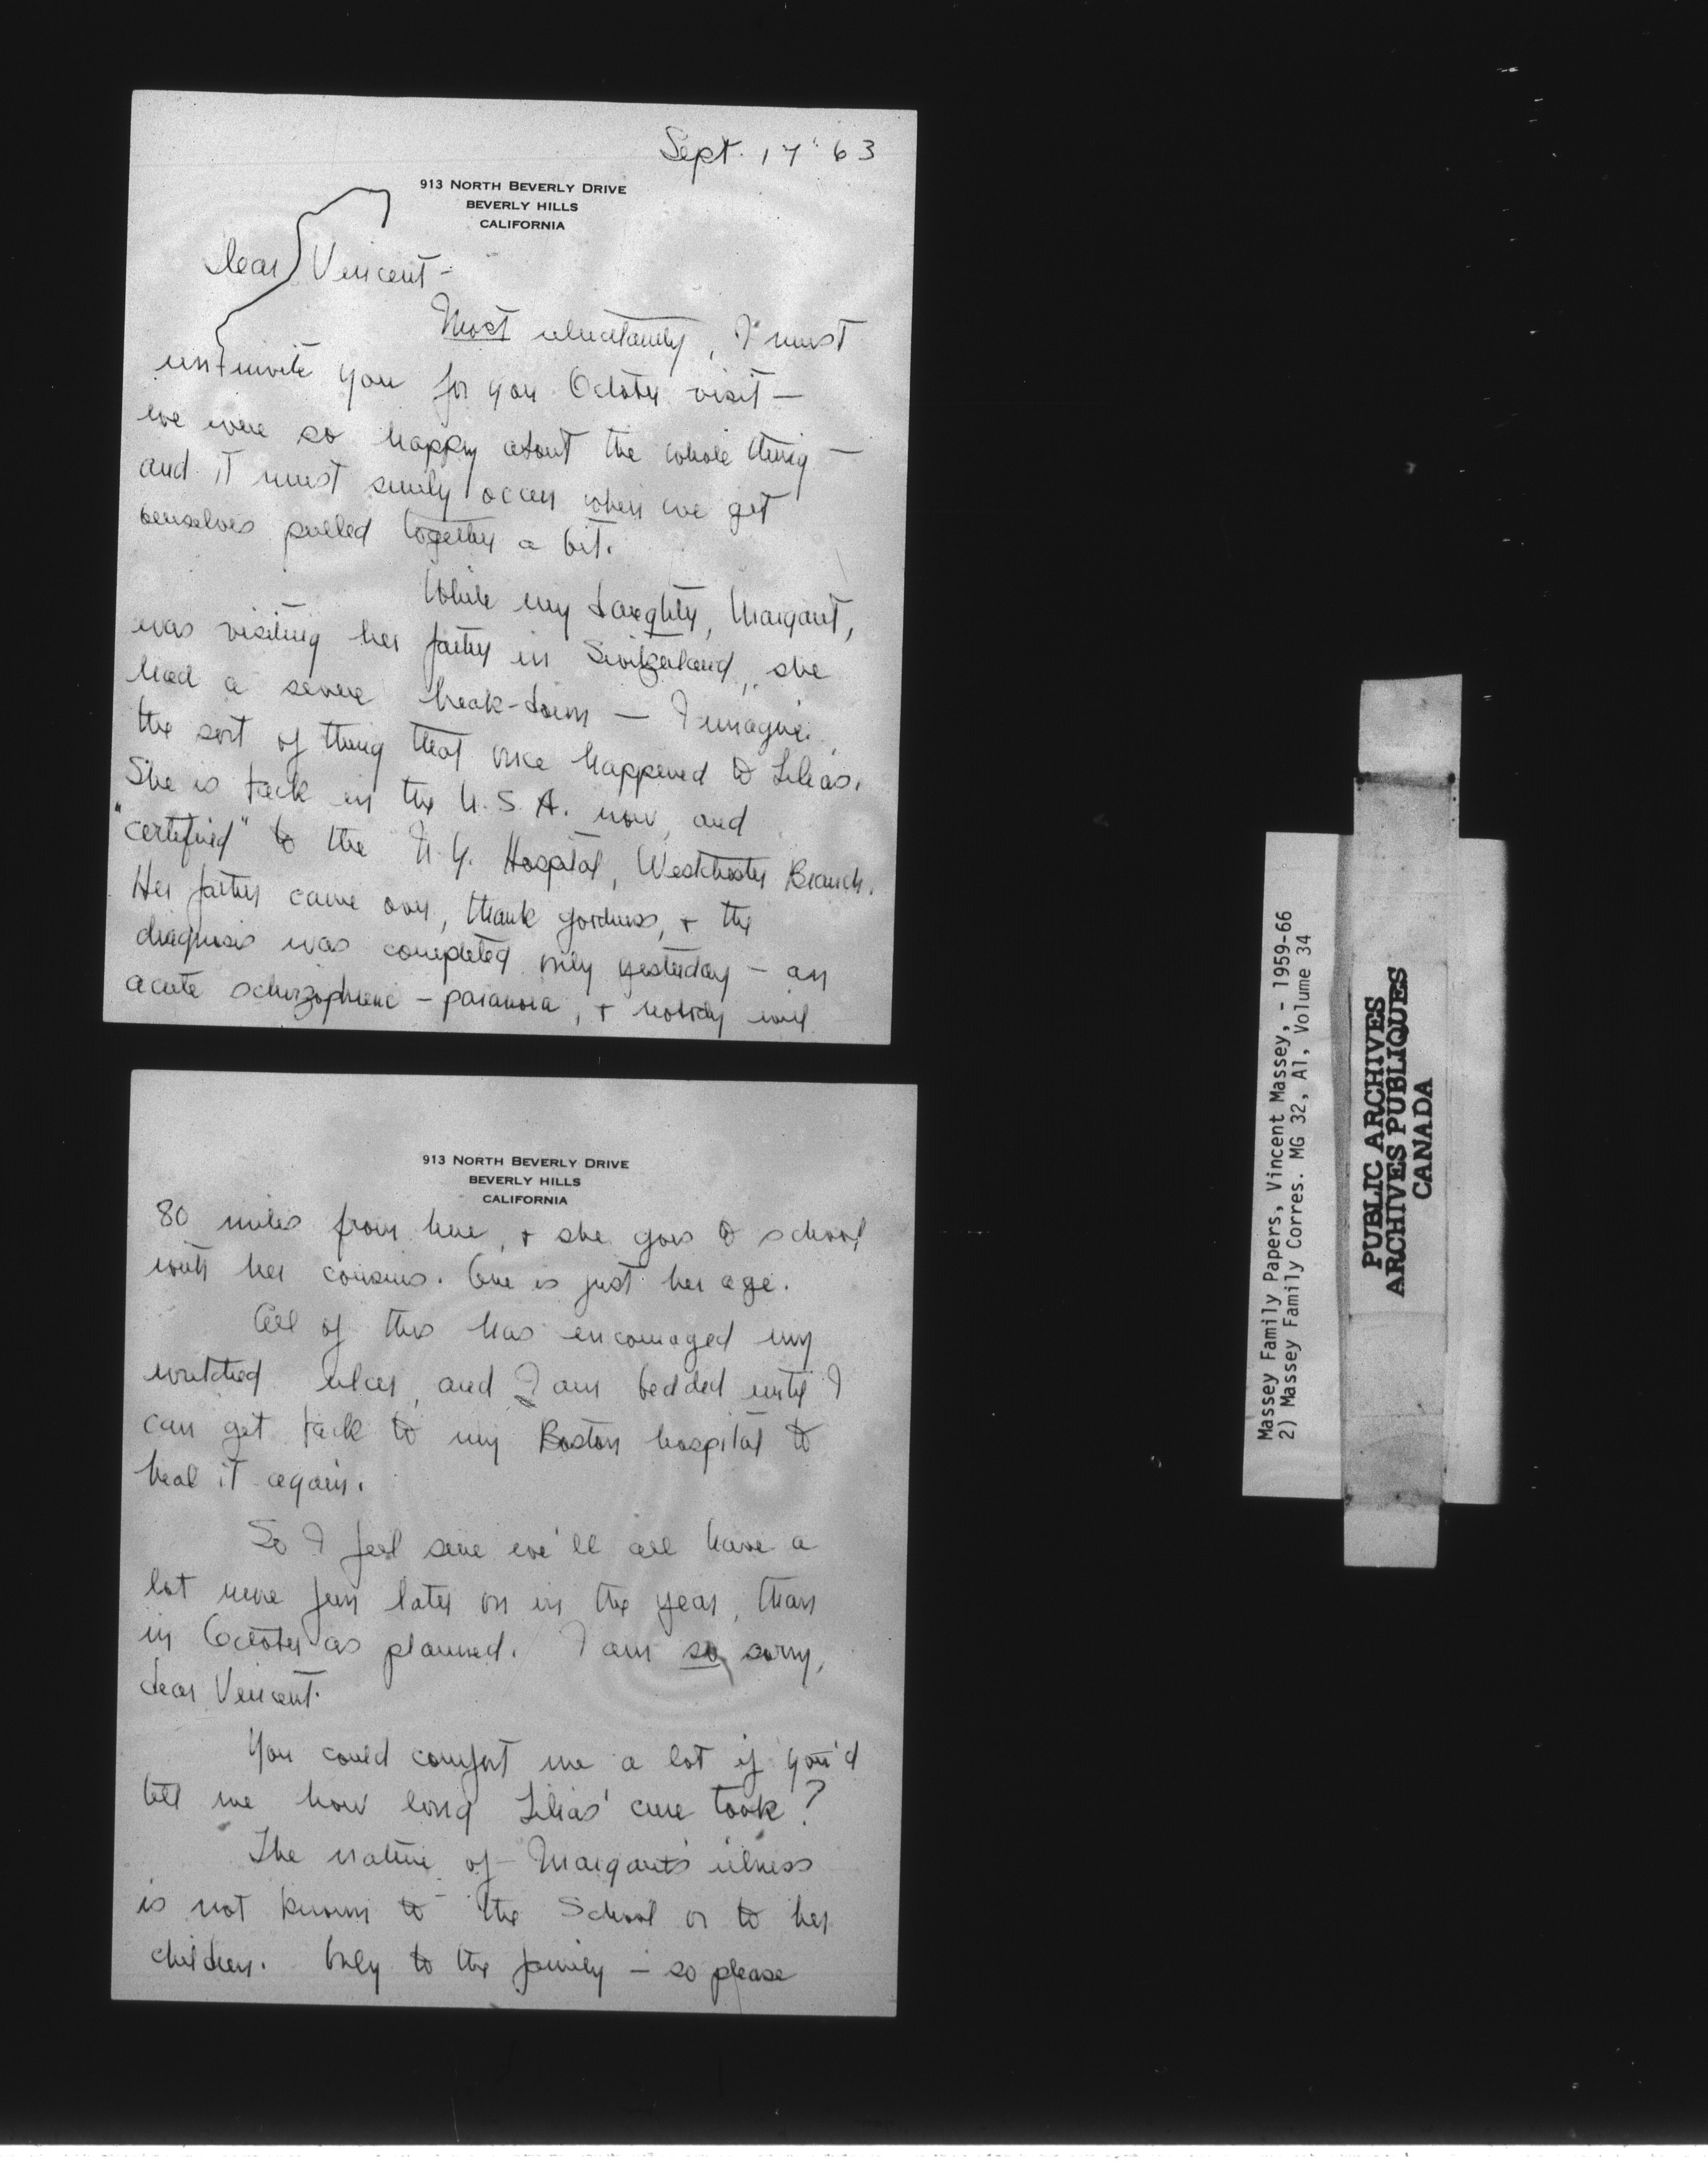 Sept. 17 '63
913 NORTH BEVERLY DRIVE
BEVERLY HILLS
CALIFORNIA
Dear Vincent -
Most reluctantly, I must
un-invite you for you October visit —
we were so happy about the whole thing —
and it must surely occur when we get
ourselves pulled together a bit.
While my daughter, Margaret,
was visiting her father in Switzerland, she
had a severe break-down — I imagine,
the sort of thing that once happened to Lilias.
She is back in the U.S.A. now, and
"certified" to the N.Y. Hospital, Westchester Branch.
Her father came over, thank goodness, + the
diagnosis was completed only yesterday – an
acute schizophrenic – paranoia, + nobody will
913 NORTH BEVERLY DRIVE
BEVERLY HILLS
CALIFORNIA
80 miles from here, + she goes to school
with her cousins. One is just her age.
All of this has encouraged my
wretched ulcer, and I am bedded until I
can get back to my Boston hospital to
heal it again.
So I feel sure we'll all have a
lot more fun later on in the year, than
in October as planned. I am so sorry,
dear Vincent.
You could comfort me a lot if you'd
tell me how long Lilias' cure took?
The nature of Margaret's illness
is not known to the School or to her
children. Only to the family – so please
Massey Family Papers, Vincent Massey, - 1959-66
2) Massey Family Corres. MG 32, A1, Volume 34
PUBLIC ARCHIVES
ARCHIVES PUBLIQUES
CANADA